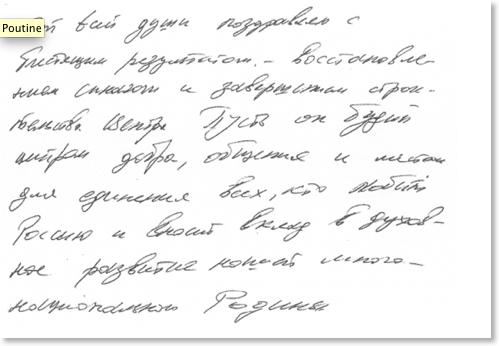 От всей души поздравляю с
Poutine
блестящим результатом – восстановле-
нием синагоги и завершением строи-
тельства Центра. Пусть он будет
центром добра, общения и местом
для единения всех, кто любит
Россию и вносит вклад в духов-
ное развитие нашей много-
национальной Родины